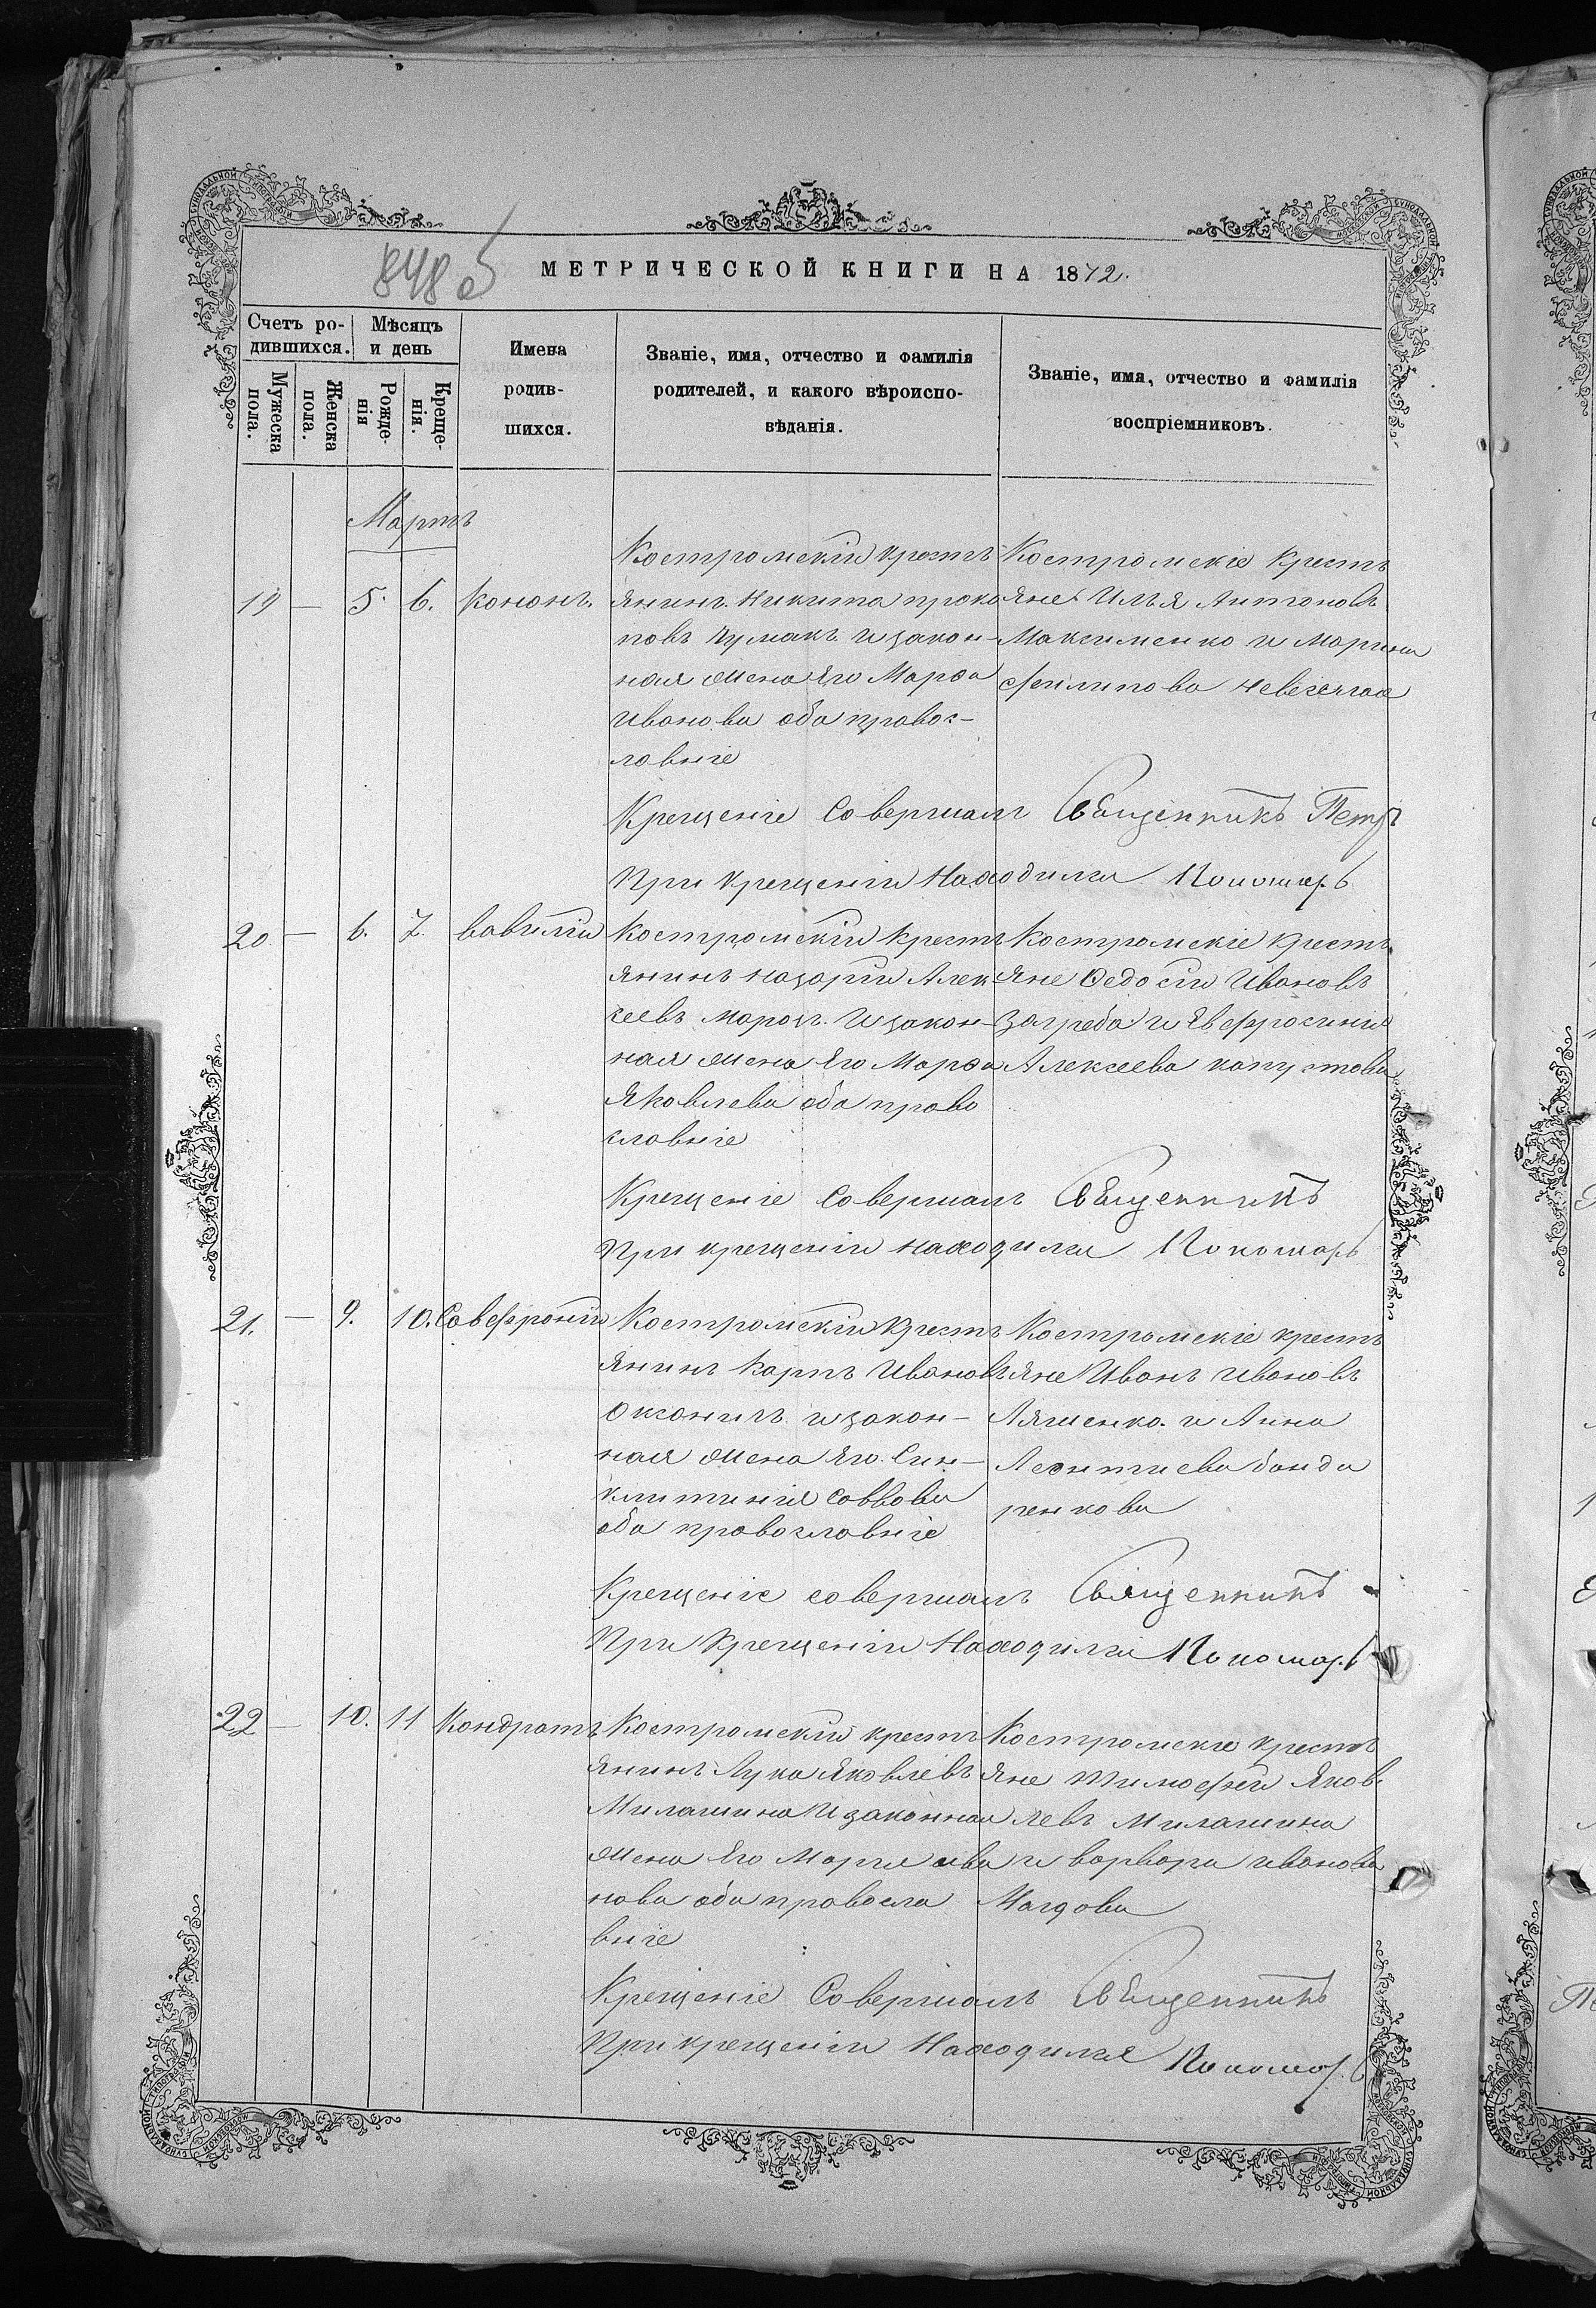 848 об
МЕТРИЧЕСКОЙ КНИГИ НА 1872.
Счетъ ро-
дившихся.
Мѣсяцъ
и день
Мужеска
пола.
Женска
пола.
Рожде-
нія
Креще-
нія.
Имена
родив-
шихся.
Званіе, имя, отчество и фамилія
родителей, и какого вѣроиспо-
вѣданія.
Званіе, имя, отчество и фамилія
воспріемниковъ.
Мартъ
19 — 5. 6. Кононъ.
Костромскій крестъ
янинъ. Никита проко
повъ Чумакъ и закон-
ная жена Его Марѳа
Иванова оба правос-
лавніе
Костромскіе Крестъ
яне Илья Антоновъ
Максименко и Марина
Филипова
Крещеніе Совершалъ Священникъ Петръ
При крещеніи Находился Пономарь
20 — 6. 7. Вавилій
Костромскій Крестъ
янинъ Назарій Алек
сеевъ Мороз. И закон-
ная жена Его Марѳа
Яковлева оба право
славніе
Костромскіе Крестъ
яне Ѳедосій Ивановъ
Загреба и Евфросинія
Алексеева капустова
Крещеніе Совершалъ Священникъ
При крещеніи находился Пономарь
21. — 9. 10. Савефроній
Костромскій Крестъ
янинъ Карпъ Ивановъ
Оксаничъ и закон-
ная жена Его Син-
клитинія Саввова
оба православніе
Костромскіе крестъ
яне Иванъ Ивановъ
Ляшенко. и Анна
Леонтиева бонда
ренкова
Крещеніе совершалъ Священникъ
При Крещеніи Находился Пономарь
22 — 10. 11 Кондратъ
Костромскій крестъ
янинъ Лука Яковлевъ
Милашина И законная
жена Его Марія ива
нова оба правосла
вніе
Костромскіе крестъ
яне Тимофей Яков.
левъ Милашина
и варвара иванова
Крещеніе Совершалъ Священникъ
При крещеніи Находился Пономарь